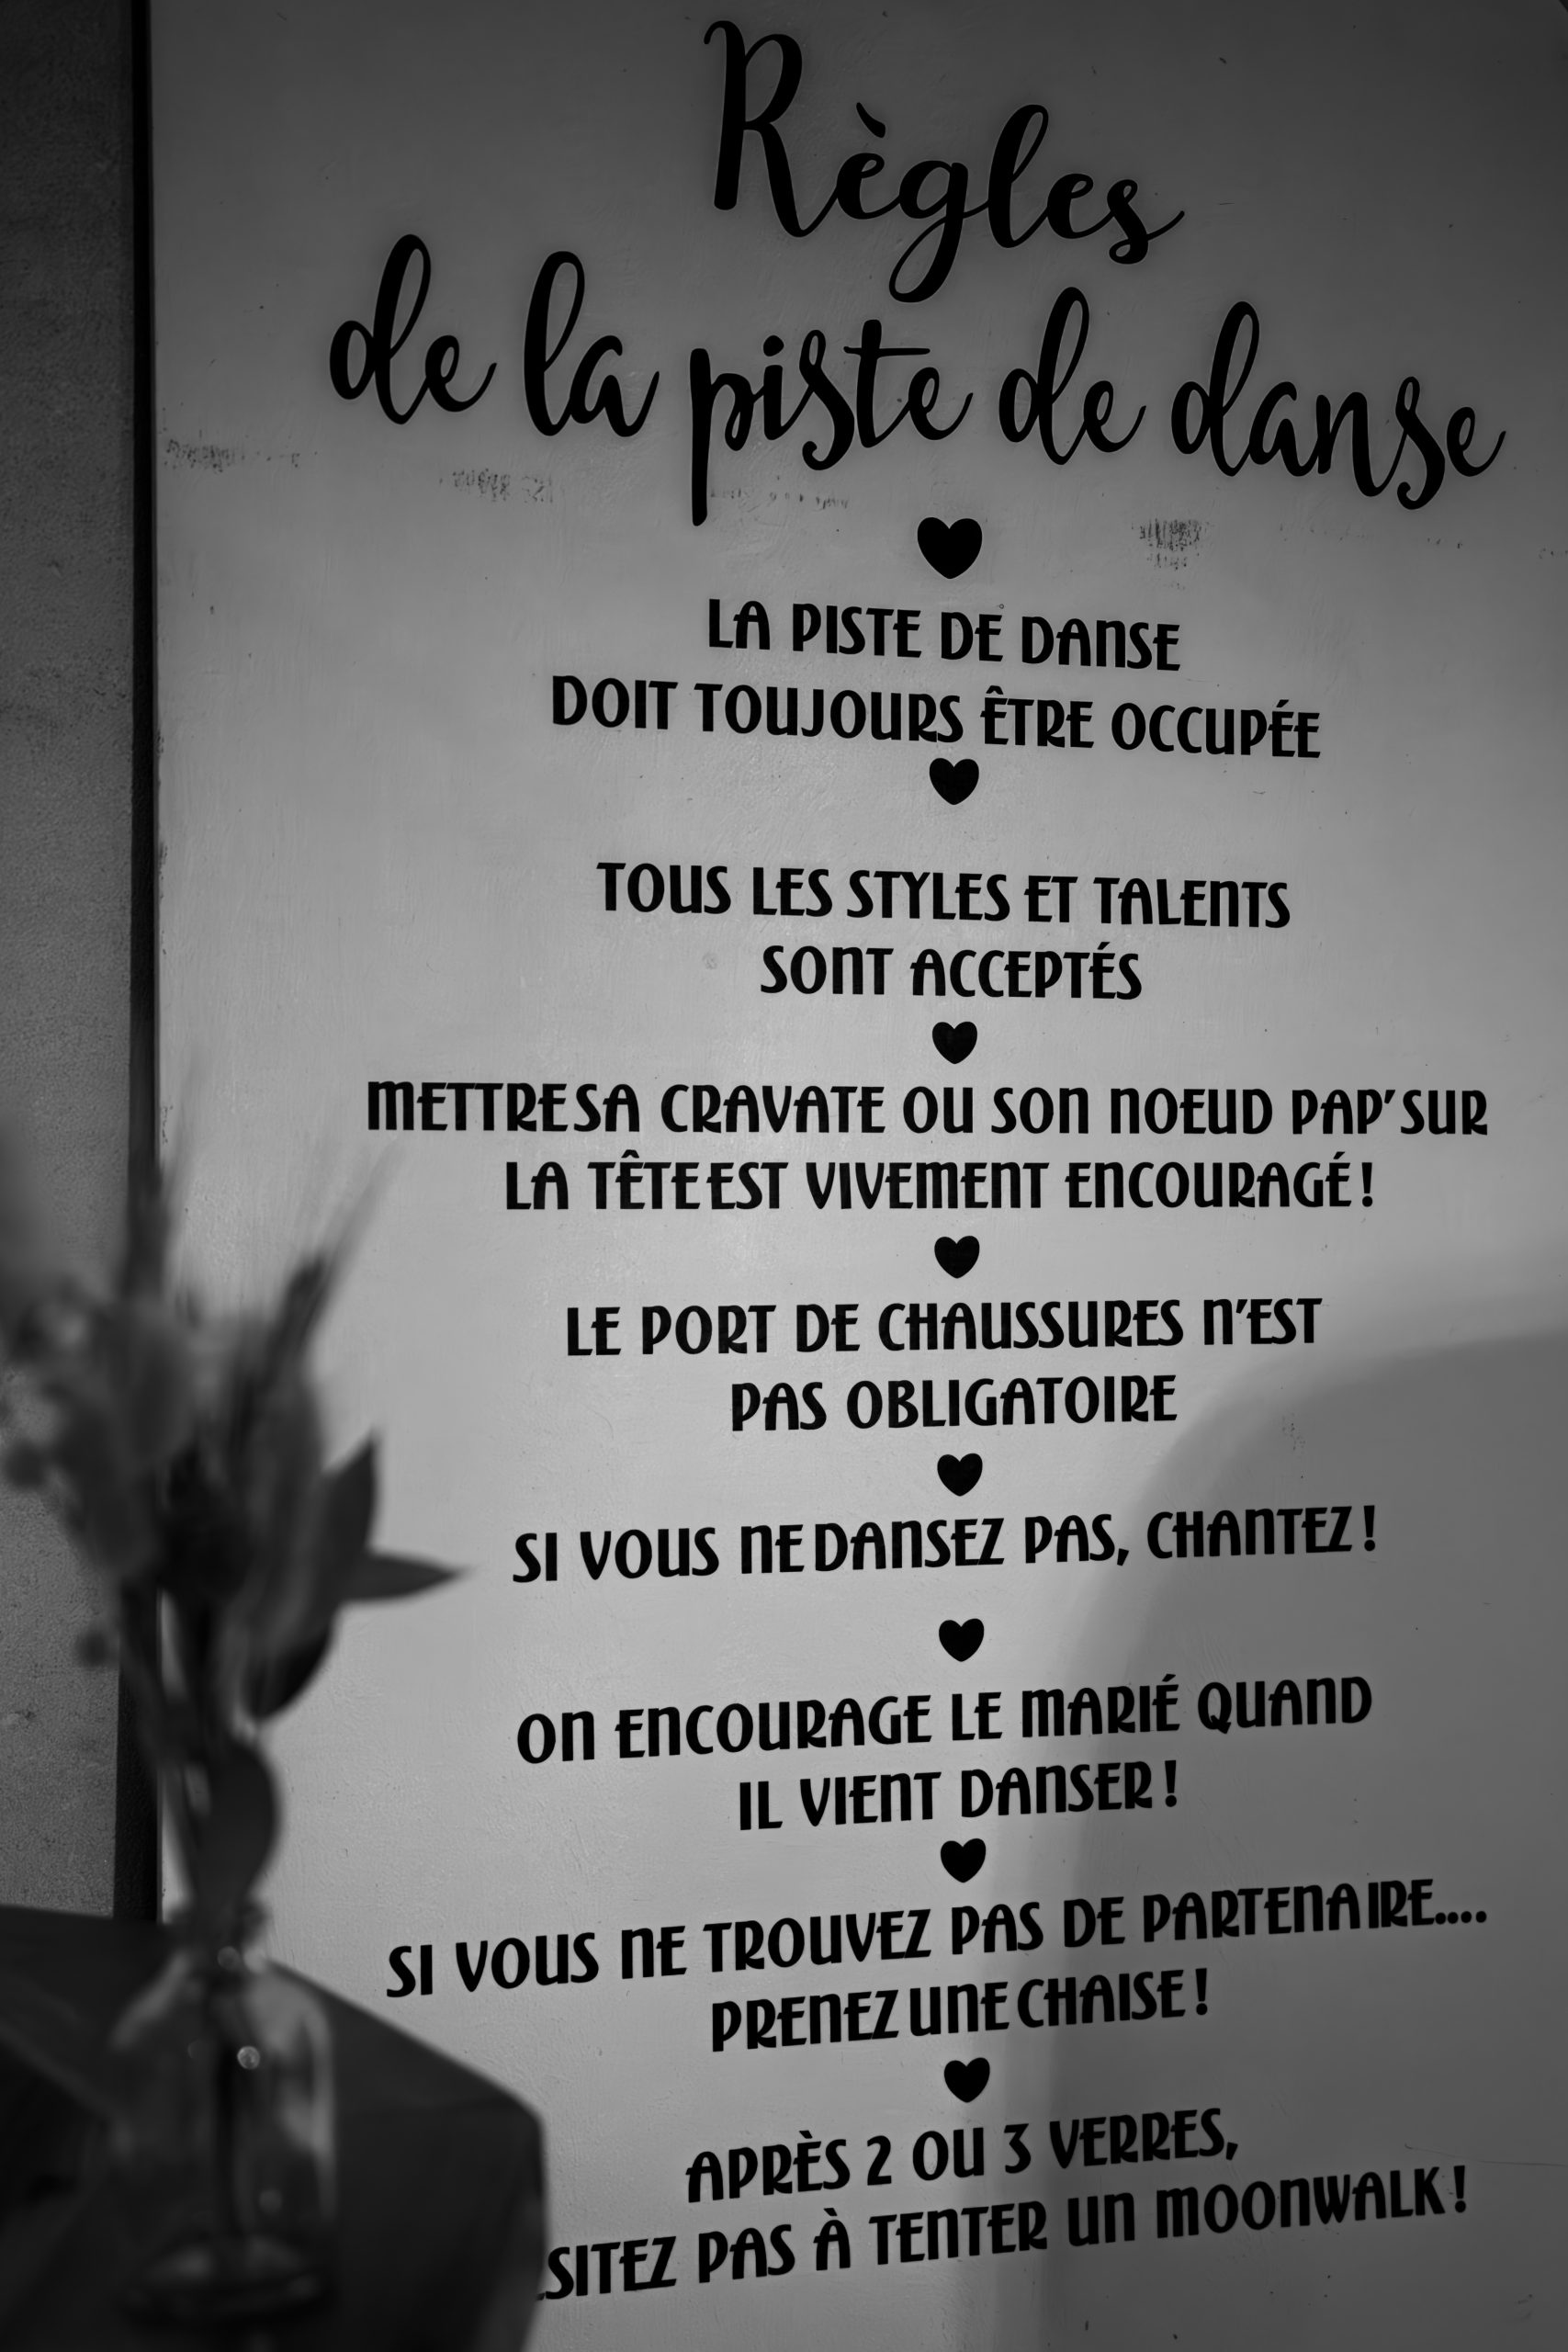 Règles
de la piste de danse
LA PISTE DE DANSE
DOIT TOUJOURS ÊTRE OCCUPÉE
TOUS LES STYLES ET TALENTS
SONT ACCEPTÉS
METTRE SA CRAVATE OU SON NOEUD PAP' SUR
LA TÊTE EST VIVEMENT ENCOURAGÉ !
LE PORT DE CHAUSSURES N'EST
PAS OBLIGATOIRE
SI VOUS NE DANSEZ PAS, CHANTEZ !
ON ENCOURAGE LE MARIÉ QUAND
IL VIENT DANSER !
SI VOUS NE TROUVEZ PAS DE PARTENAIRE....
PRENEZ UNE CHAISE !
APRÈS 2 OU 3 VERRES,
SITEZ PAS À TENTER UN MOONWALK !